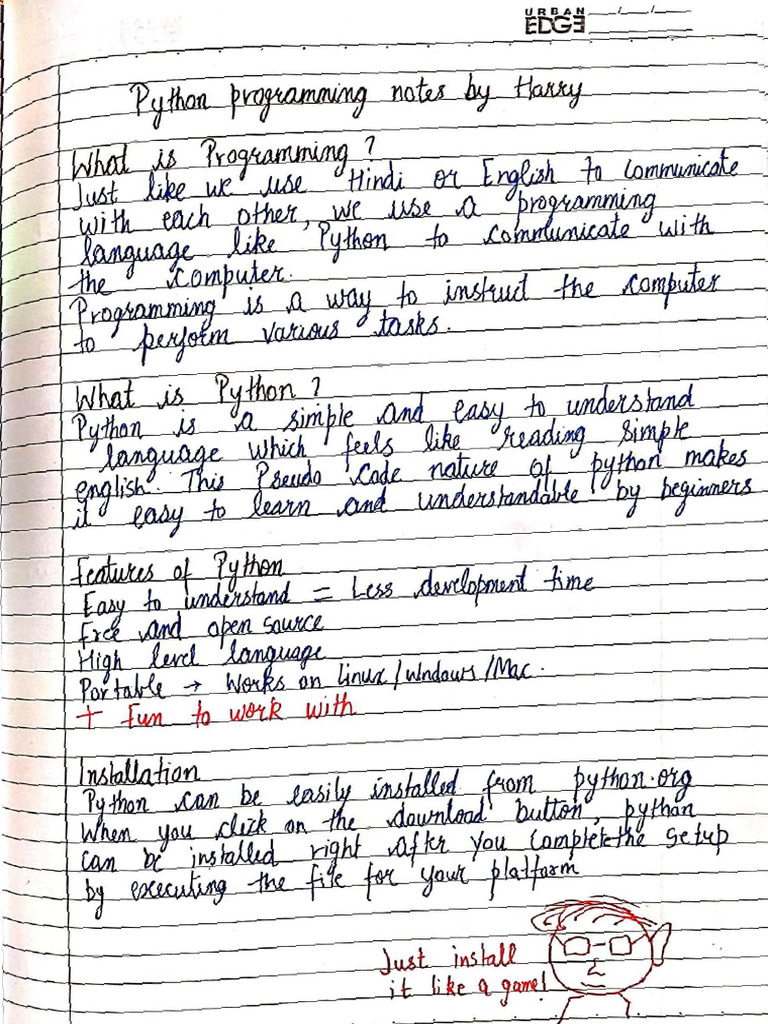 URBAN
EDGE
Python programming notes by Harry
What is Programming?
Just like we use Hindi or English to communicate
with each other, we use a programming
language like Python to communicate with
the computer.
Programming is a way to instruct the computer
to perform various tasks.
What is Python?
Python is a simple and easy to understand
language which feels like reading simple
english. This Pseudo code nature of python makes
it easy to learn and understandable by beginners
Features of Python
Easy to understand = Less development time
Free and open source
High level language
Portable → Works on Linux/Windows/Mac.
+ Fun to work with
Installation
Python can be easily installed from python.org
When you click on the download button, python
can be installed right after you complete the setup
by executing the file for your platform
Just install
it like a game!